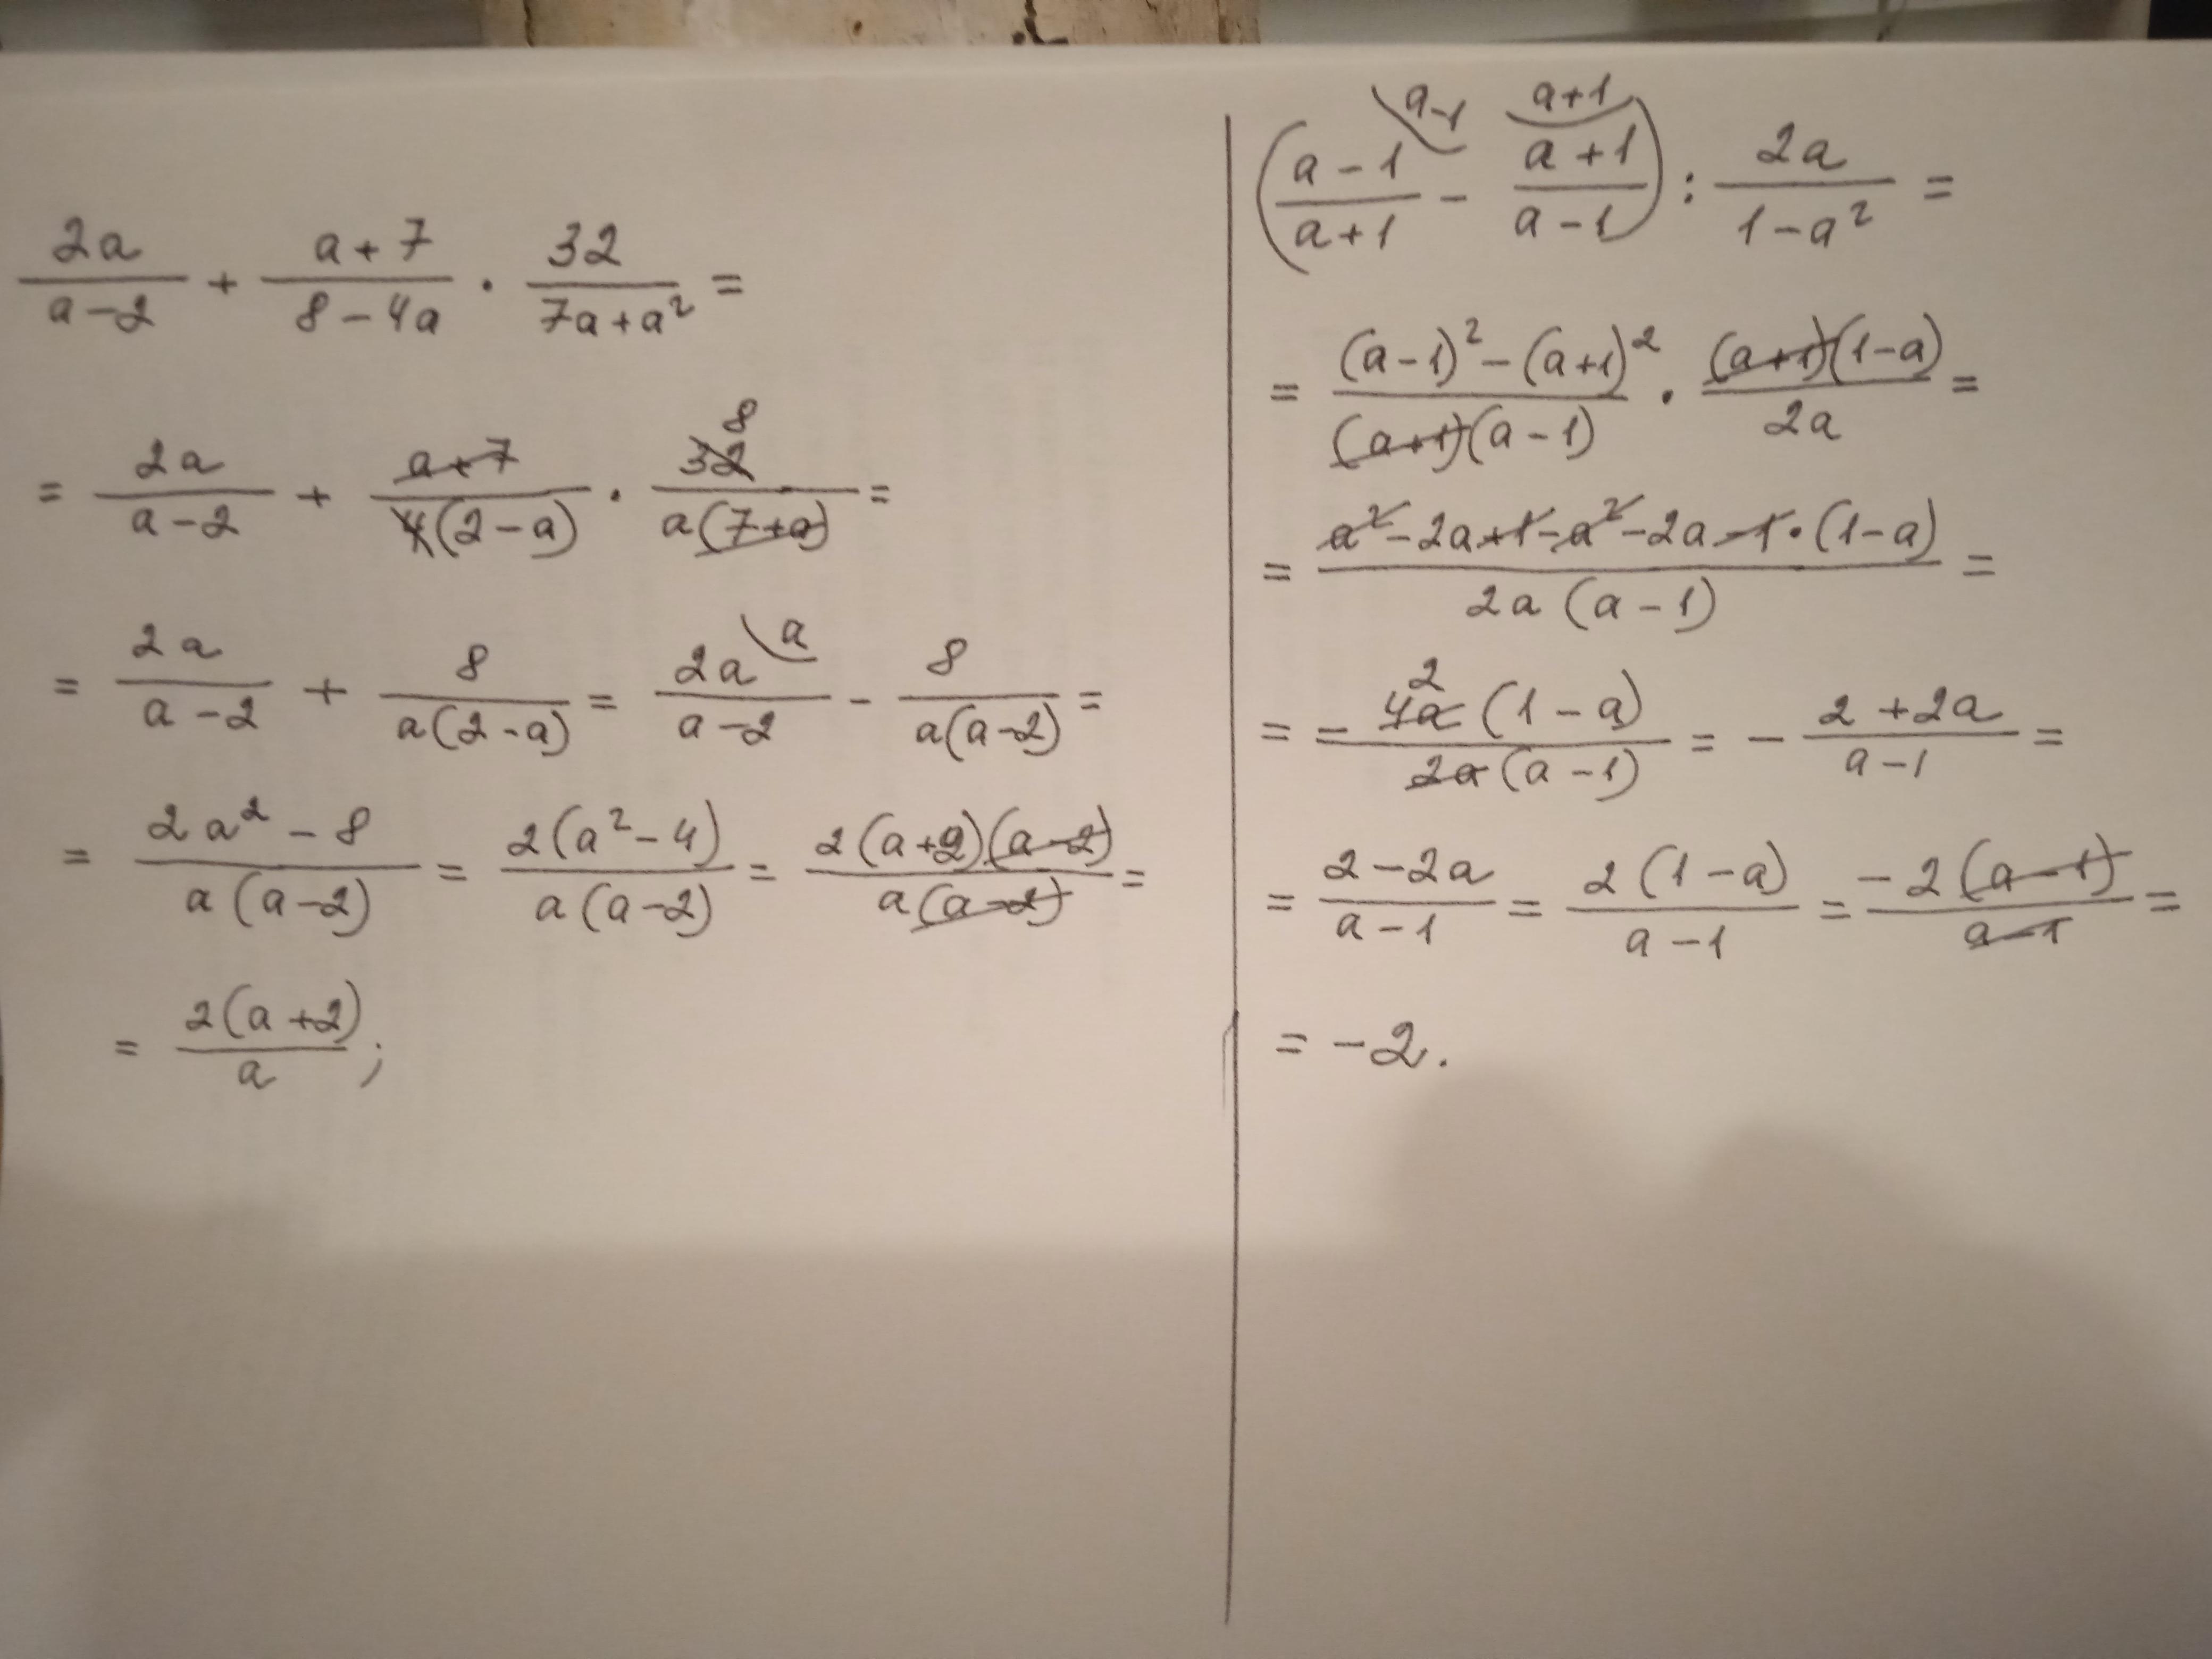 2a/(a-2) + (a+7)/(8-4a) · 32/(7a+a²) =
= 2a/(a-2) + (a+7)/(4(2-a)) · 32/(a(7+a)) = 8
= 2a/(a-2) + 8/(a(2-a)) = 2a/(a-2) a - 8/(a(a-2)) =
= (2a²-8)/(a(a-2)) = 2(a²-4)/(a(a-2)) = 2(a+2)(a-2)/(a(a-2)) =
= 2(a+2)/a ;
a-1 a+1
((a-1)/(a+1) - (a+1)/(a-1)) : 2a/(1-a²) =
= ((a-1)²-(a+1)²)/((a+1)(a-1)) · (a+1)(1-a)/2a =
= (a²-2a+1-a²-2a-1·(1-a))/(2a(a-1)) =
= - 4a(1-a)/(2a(a-1)) 2 = - (2+2a)/(a-1) =
= (2-2a)/(a-1) = 2(1-a)/(a-1) = -2(a-1)/(a-1) =
= -2.